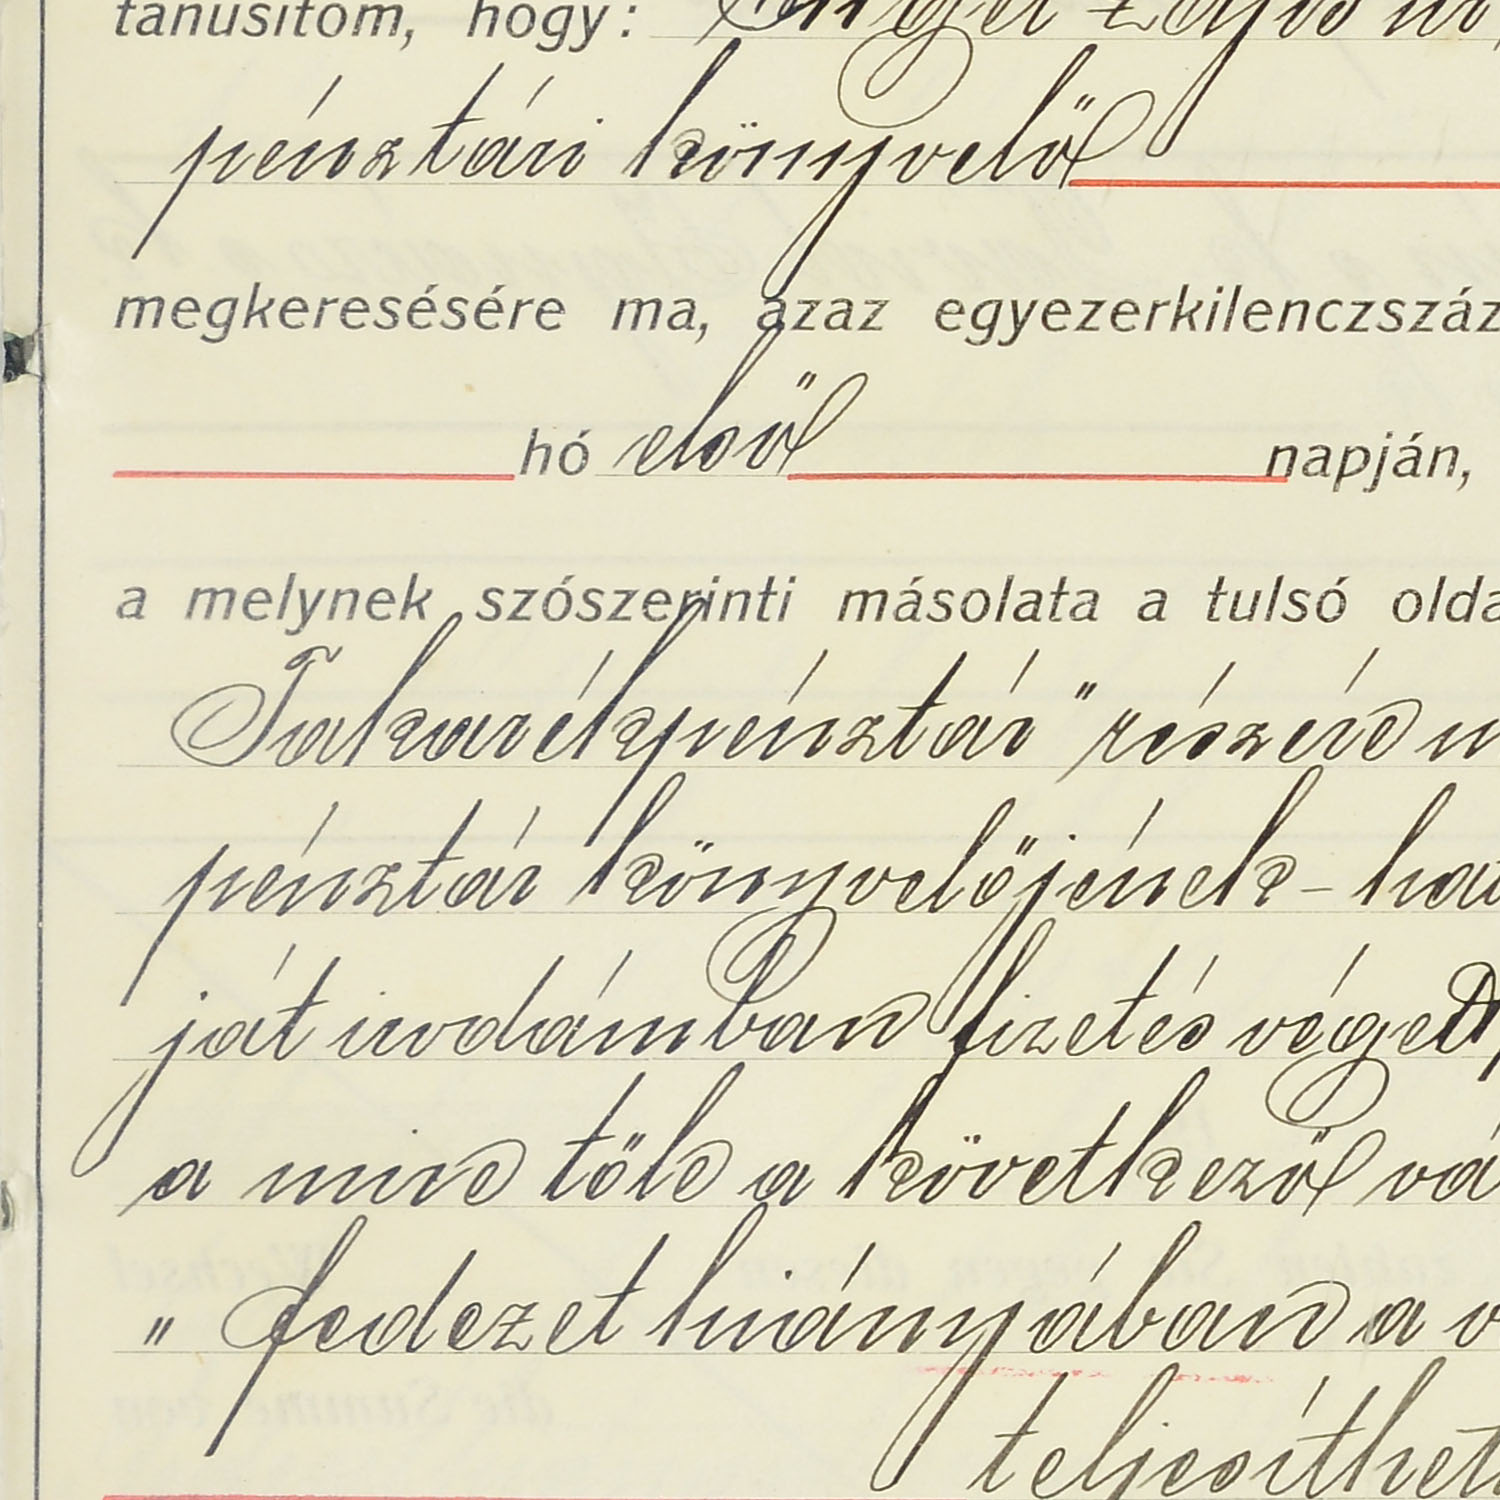 tanusítom, hogy: Lajos
pénztári könyvelő
megkeresésére ma, azaz egyezerkilenczszáz
hó első napján,
a melynek szószerinti másolata a tulsó olda
Takarékpénztár" részére
pénztár könyvelőjének -
ját irodámban fizetés véget
a mire tőle a következő vá
" fedezet hiányában a v
teljesíthet